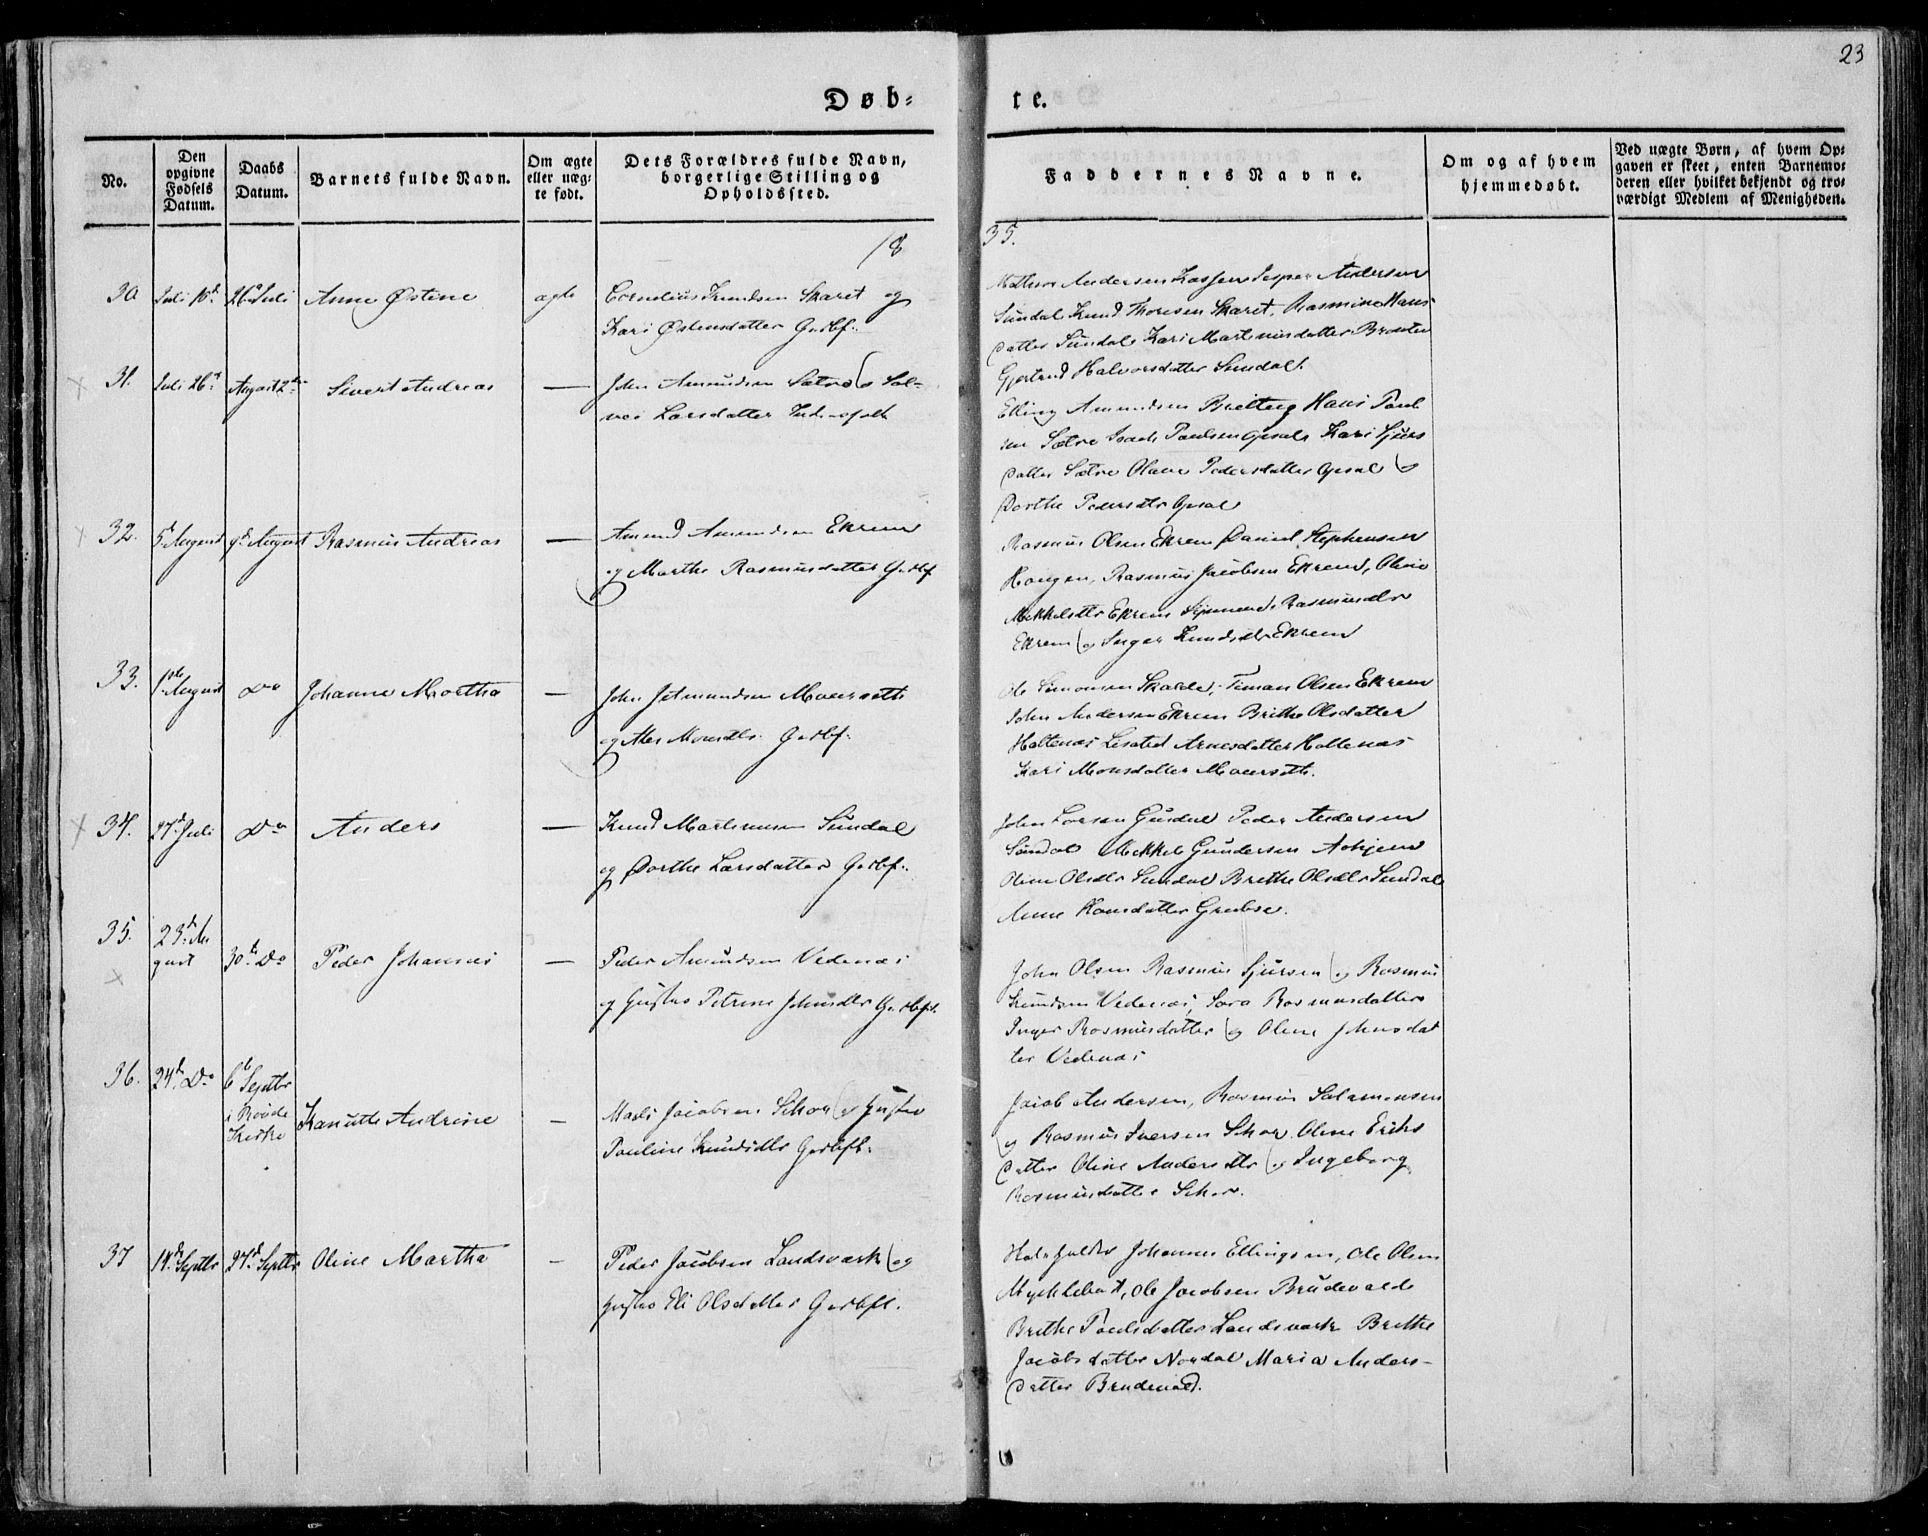 23
Døb=
te.
No.
Den opgivne Fødsels Datum.
Daabs Datum.
Barnets fulde Navn.
Om ægte eller uæg= te født.
Dets Forældres fulde Navn, borgerlige Stilling og Opholdssted.
Faddernes Navne.
Om og af hvem hjemmedøbt.
Ved uægte Børn, af hvem Op= gaven er skeet, enten Barnemo= deren eller hvilket bekjendt og tro= værdigt Medlem af Menigheden.
18
35.
30 Juli 16d 26d Juli Anne Østine ægte Cornelius Knudsen Skaret og
Kari Østensdatter Grdbf.
Andersen Jesper Andersen
Sundal Knud Thoresen Skaret, Rasmine Hans
datter Sundal Kari Martinusdatter
Gjertrud Halvorsdatter Sundal.
31. Juli 26d August 2den Sivert Andreas — John Amundsen Sætre og Sol-
vei Larsdatter
Elling Amundsen Hans Poul
sen Sætre Isach Poulsen Opsal Kari Sjurs
datter Sætre Olave Pedersdatter Opsal og
Dorthe Pedersdtr Opsal
32. 5d August 9d August Rasmus Andreas — Amund Amundsen Ekrem
og Marthe Rasmusdatter Grdbf
Rasmus Olsen Ekrem Daniel Stephensen
Haugen, Rasmus Jacobsen Ekrem, Oline
Mekkelsdtr Ekrem Rasmusdtr
Ekrem og Inger Knudsdtr Ekrem
33. 1ste August Do Johanne Martha — John Jetmundsen Mouerseth
og Monsdtr. Grdbf.
Ole Simonsen Timan Olsen Ekrem
John Andersen Ekrem Brithe Olsdatter
Holtenæs Lisabet Arnesdatter Holtenæs
Kari Monsdatter Mouerseth.
34. 27d Juli Do Anders — Knud Martinusen Sundal
og Dorthe Larsdatter Grdbf.
John Larsen Peder Andersen
Sundal Mekkel Gundersen
Oline Olsdtr Sundal Brithe Olsdtr Sundal
Anne Hansdatter
35. 23d Au
gust 30te Do Peder Johannes — Peder Amundsen Vedenæs
og Hustro Petrine Johnsdtr Grdbfl.
John Olsen Rasmus Sjursen og Rasmus
Knudsen Vedenæs, Sara Rasmusdatter
Inger Rasmusdatter og Oline Johnsdat
ter Vedenæs
36. 24d Do 6te Septbr
i Kirke Kanutte Andrine — Mads Jacobsen Skor og Hustro
Pauline Knudsdtr Grdbfl.
Jacob Andersen, Rasmus Salamonsen
og Rasmus Iversen Skor, Oline Eriks
datter Oline Andersdtr og Ingeborg
Rasmusdatter Skor.
37 14d Septbr 27d Septbr Oline Martha — Peder Jacobsen Landsværk og
Hustro Eli Olsdatter Grdbfl.
Johannes Ellingsen, Ole Olsen
Myklebust, Ole Jacobsen Brudevolde
Brithe Poulsdatter Landsværk Brithe
Jacobsdatter Nordal Maria Anders-
datter Brudevold.